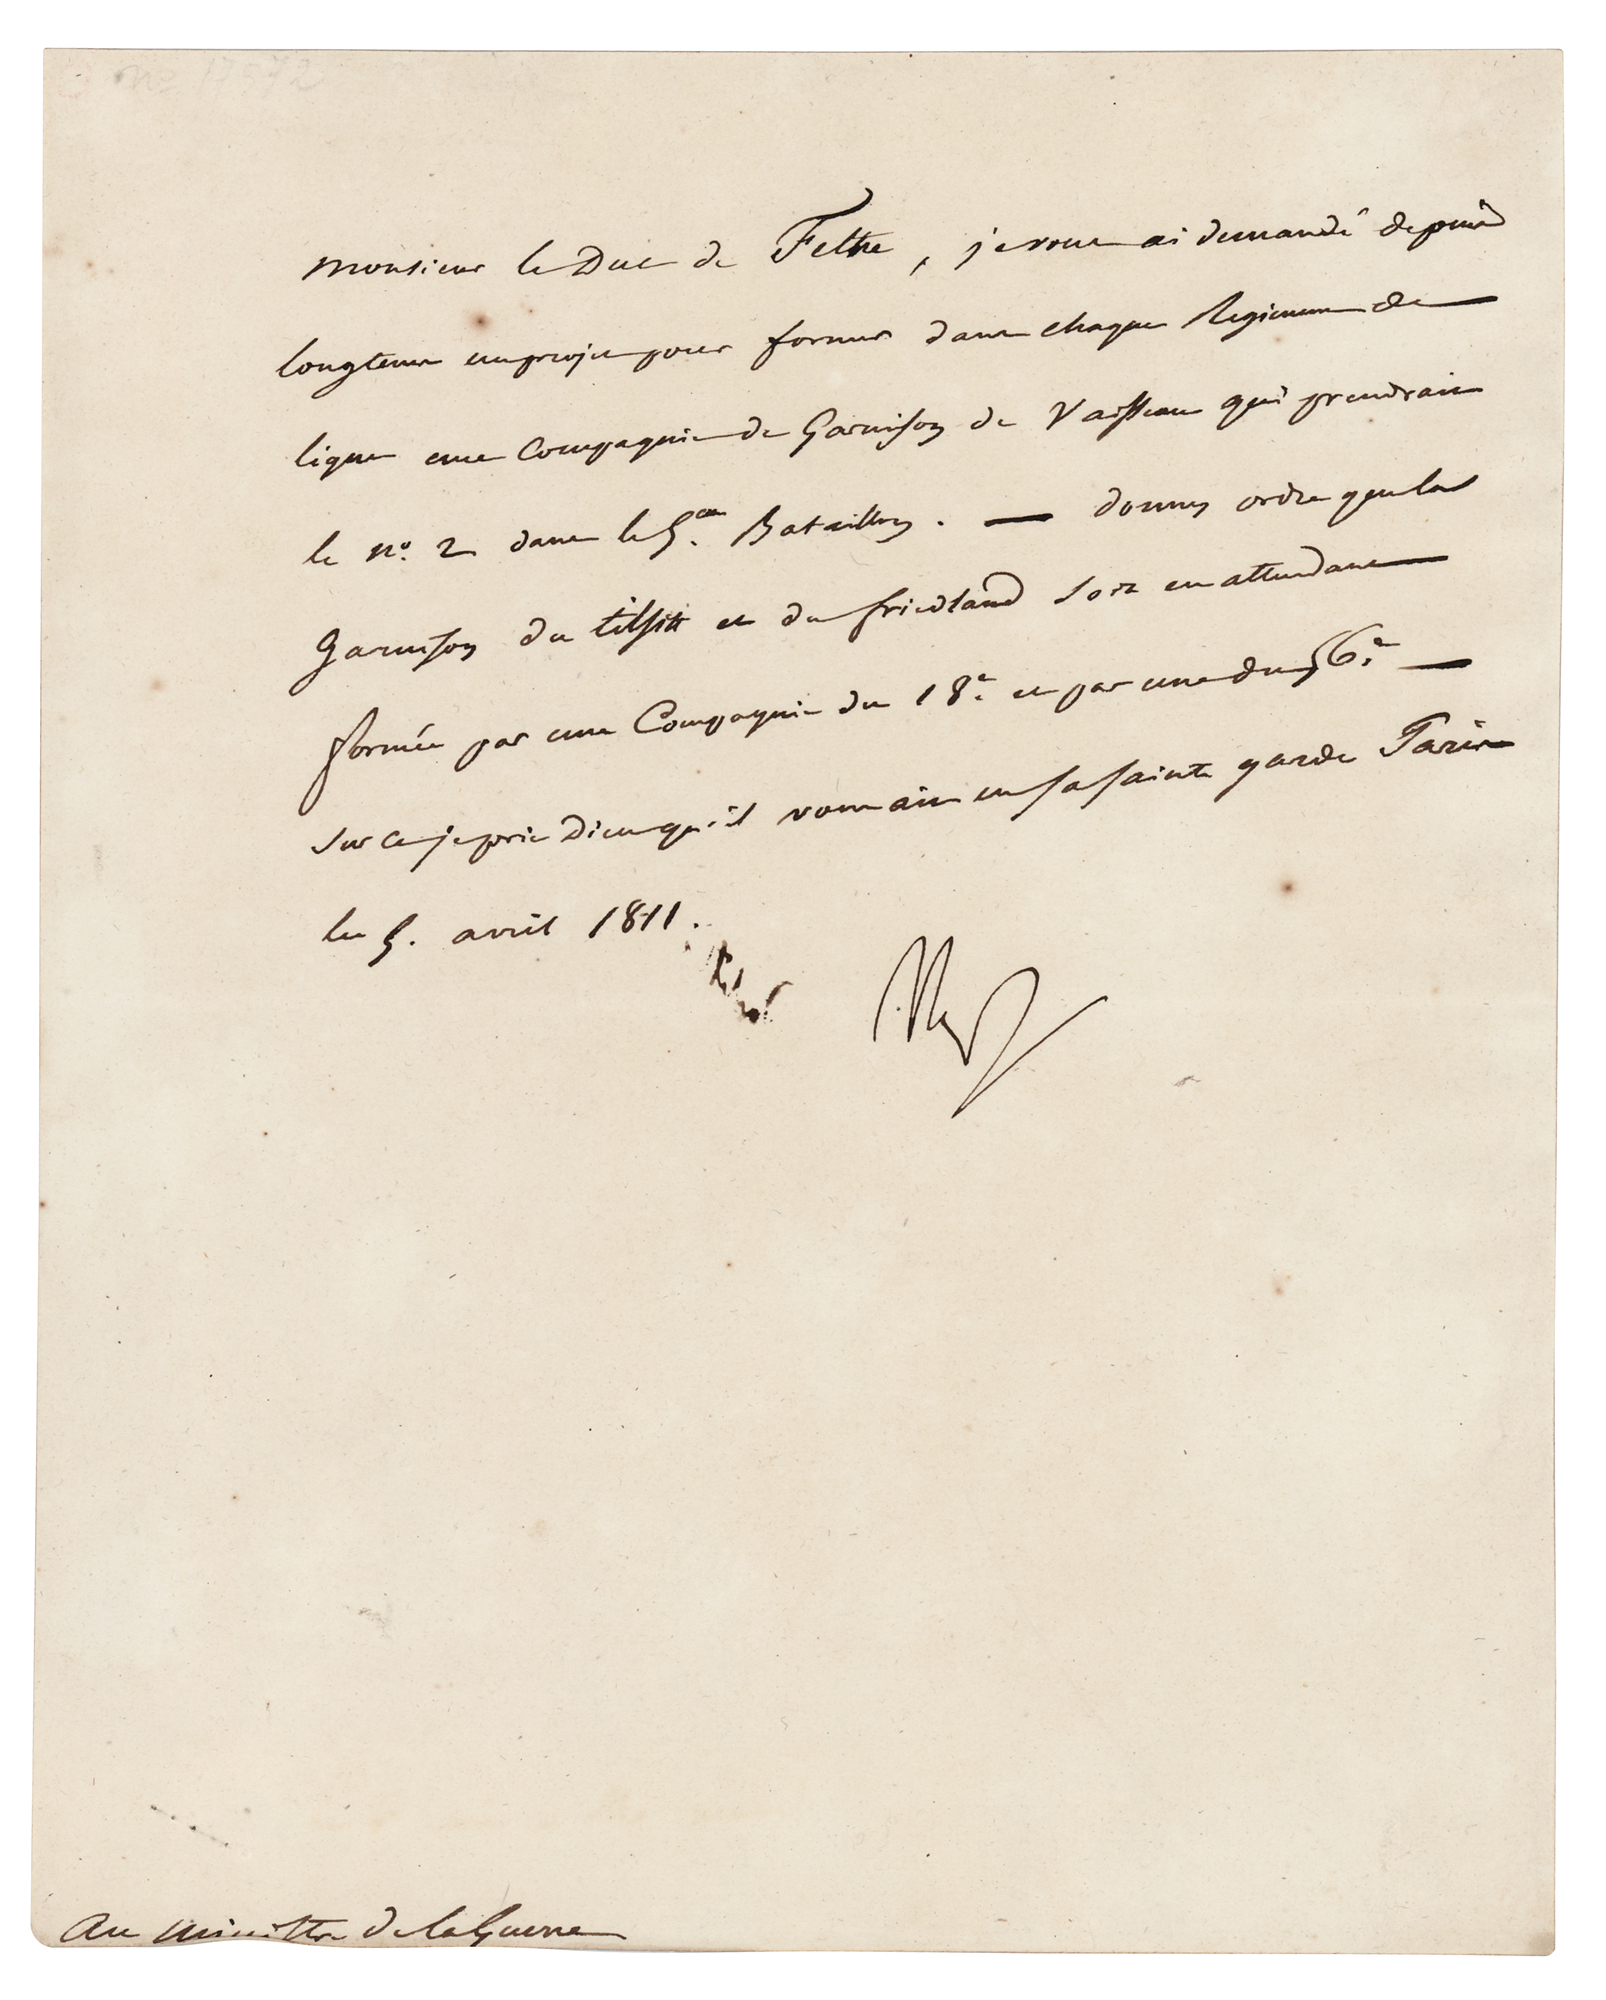 no 17572
monsieur le Duc de Feltre, je vous ai demandé depuis
longtems un projet pour former dans chaque Regiment de
ligne une Compagnie de Garnison de Vaisseau qui prendrait
le no. 2 dans le 5.eme Bataillon. — donnez ordre que la
Garnison du tilsitt et du friedland soit en attendant
formée par une Compagnie du 18.e et par une du 56.e —
sur ce je prie Dieu qu'il vous ait en sa sainte garde Paris
le 5. avril 1811.
Nap
au ministre de la Guerre